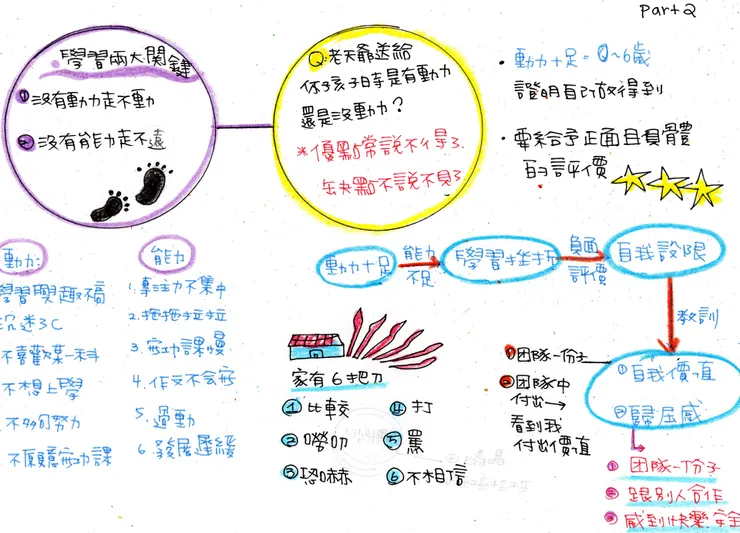 Part 2
學習兩大関鍵
① 沒有動力走不動
② 沒有能力走不遠
Q: 老天爺送給
你孩子時是有動力
還是沒動力?
*優點常說不得了.
缺點不說不見了.
• 動力十足=0~6歲
證明自己放得到
• 要給予正面且具體
的評價
動力:
學習興趣不高
沉迷3C
不喜歡某一科
不想上學
不夠努力
不願意寫功課
能力
1. 專注力不集中
2. 拖拖拉拉
3. 寫功課慢
4. 作文不會寫
5. 過動
6. 發展遲緩
動力十足
能力
不足
學習挫折
負面
評價
自我設限
教訓
①自我價值
②歸屬感
家有6把刀
① 比較
② 嘮叨
③ 恐嚇
④ 打
⑤ 罵
⑥ 不相信
① 团隊一份子
② 团隊中
付出→
看到我
付出價值
① 团隊一份子
② 跟別人合作
③ 感到快樂.安全